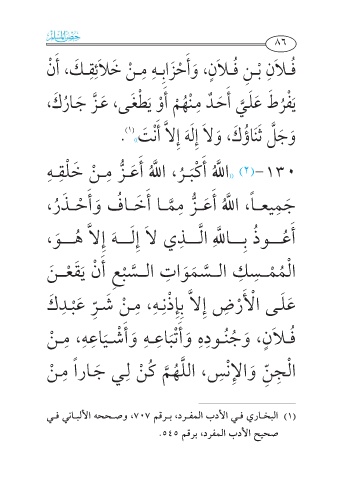 حصن المسلم
٨٦
فُـلَانِ بْـنِ فُـلَانٍ، وَأَحْزَابِـهِ مِـنْ خَلَائِقِـكَ، أَنْ
يَفْرُطَ عَلَـيَّ أَحَـدٌ مِنْهُـمْ أَوْ يَطْغَى، عَـزَّ جَارُكَ،
وَجَلَّ ثَنَاؤُكَ، وَلَا إِلَهَ إِلَّا أَنْتَ»(١).
١٣٠-(٢) «اللَّهُ أَكْبَـرُ، اللَّهُ أَعَـزُّ مِـنْ خَلْقِـهِ
جَمِيعـاً، اللَّهُ أَعَـزُّ مِمَّـا أَخَـافُ وَأَحْـذَرُ،
أَعُـوذُ بِـاللَّهِ الَّـذِي لَا إِلَـهَ إِلَّا هُـوَ،
الْمُمْسِـكِ السَّـمَوَاتِ السَّـبْعِ أَنْ يَقَعْـنَ
عَلَـى الْأَرْضِ إِلَّا بِإِذْنِـهِ، مِـنْ شَـرِّ عَبْـدِكَ
فُـلَانٍ، وَجُنُـودِهِ وَأَتْبَاعِـهِ وَأَشْـيَاعِهِ، مِـنَ
الْجِـنِّ وَالإِنْـسِ، اللَّهُـمَّ كُـنْ لِـي جَـاراً مِـنْ
(١) البخاري في الأدب المفرد، برقم ٧٠٧، وصححه الألباني في
صحيح الأدب المفرد، برقم ٥٤٥.